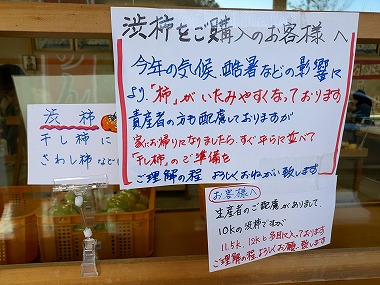 渋柿をご購入のお客様へ
今年の気候、酷暑などの影響に
より、「柿」がいたみやすくなっております
責産者の方も配慮しておりますが
家にお帰りになりましたら、すぐ平らに並べて
「干し柿」のご準備を
ご理解の程 よろしくおねがい致します
渋柿
干し柿に
さわし柿など
お客様へ
生産者のご配慮がありまして、
10kの渋柿ですが
11.5k 12kと多目に入っております
ご理解の程よろしくお願い致します